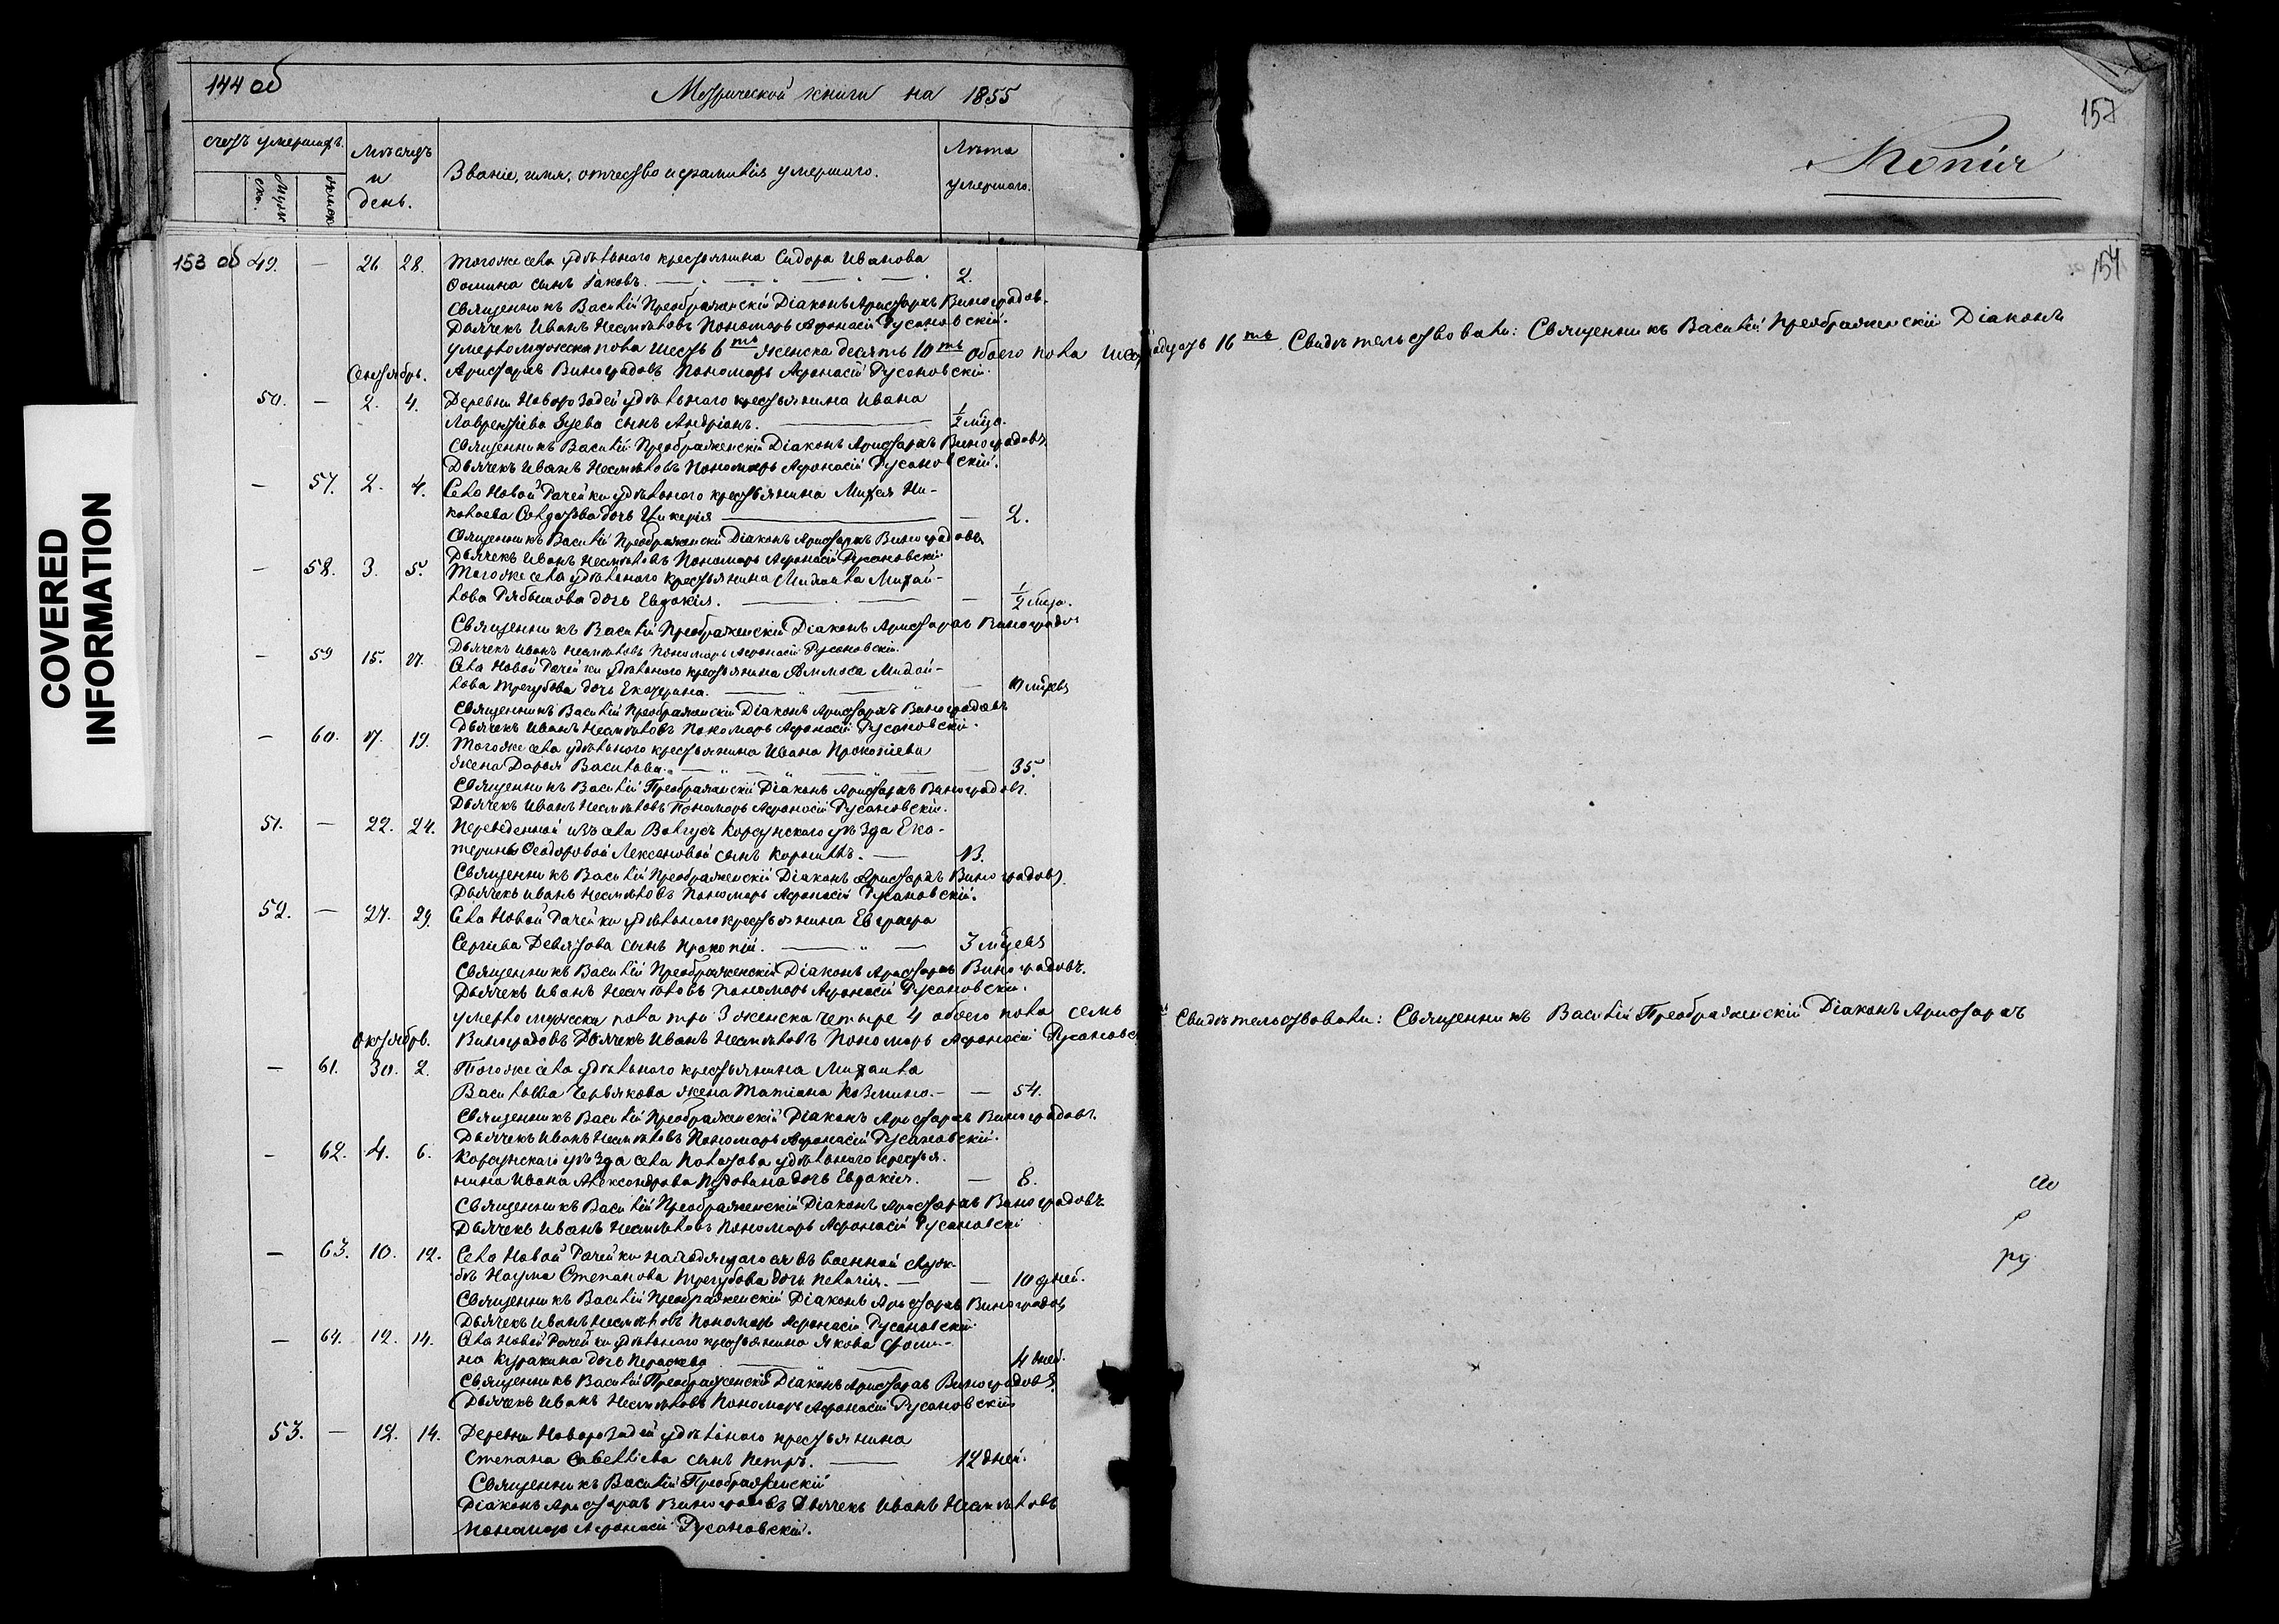 144 об
Метрической книги на 1855
157
Копія
счетъ умершихъ.
Мужеска.
женск
Мѣсяцъ и день.
Званіе, имя, отчество и фамилія умершаго.
Лѣта умершаго.
153 об 49. — 26 28. тогоже села удѣльнаго крестьянина Сидора Иванова
154
Фомина сынъ Іаковъ. 2.
Священникъ Василій Преображенскій Діаконъ Аристархъ Виноградов.
Дьячекъ Иванъ Несмѣловъ Пономарь Афонасій Русановскій.
умерло мужеска пола шесть 6ть женска десять 10ть обоего пола шестнадцать 16ть. Свидѣтельствовали: Священникъ Василій Преображенскій Діаконъ
Сентябрь. Аристархъ Виноградовъ Пономарь Афонасій Русановскій.
50. — 2. 4. Деревни удѣльнаго крестьянина Ивана
Лаврентіева Зуева сынъ Андріанъ. ½ мѣса.
Священникъ Василій Преображенскій Діаконъ Аристархъ Виноградовъ.
Дьячекъ Иванъ Несмѣловъ Пономарь Афонасій Русановскій.
— 57. 2. 4. Села Новой Рачейки удѣльнаго крестьянина Михея Ни-
колаева Солдатова дочь Гликерія — 2.
Священникъ Василій Преображенскій Діаконъ Аристархъ Виноградовъ
Дьячекъ Иванъ Несмѣловъ Пономарь Афонасій Русановскій
— 58. 3. 5. Тогоже села удѣльнаго крестьянина Михаила Михай-
лова Рябышова дочь Евдокія. — ½ мѣса.
Священникъ Василій Преображенскій Діаконъ Аристархъ Виноградов
Дьячекъ Иванъ Несмѣловъ Пономарь Афонасій Русановскій.
— 59 15. 17. Села Новой Рачейки удѣльнаго крестьянина Михай-
лова Трегубова дочь Екатерина. —
Священникъ Василій Преображенскій Діаконъ Аристархъ Виноградовъ
Дьячекъ Иванъ Несмѣловъ Пономарь Афонасій Русановскій.
— 60. 17. 19. Тогоже села удѣльнаго крестьянина Ивана Прокопіева
жена Дарья Васильева. — 35.
Священникъ Василій Преображенскій Діаконъ Аристархъ Виноградовъ.
Дьячекъ Иванъ Несмѣловъ Пономарь Афонасій Русановскій.
51. — 22. 24. Переведенной изъ села Корсунскаго уѣзда Ека-
терины Феодоровой Лексановой сынъ Корнилъ. — 13.
Священникъ Василій Преображенскій Діаконъ Аристархъ Виноградовъ.
Дьячекъ Иванъ Несмѣловъ Пономарь Афонасій Русановскій.
52. — 27. 29. Села Новой Рачейки удѣльнаго крестьянина Евграфа
Сергѣева Девятова сынъ Прокопій. 3 мѣсцевъ
Священникъ Василій Преображенскій Діаконъ Аристархъ Виноградовъ.
Дьячекъ Иванъ Несмѣловъ Пономарь Афонасій Русановскій.
умерло мужеска пола три 3 женска четыре 4 обоего пола семь Свидѣтельствовали: Священникъ Василій Преображенскій Діаконъ Аристархъ
Октябрь. Виноградовъ Дьячекъ Иванъ Несмѣловъ Пономарь Афонасій Русановс
— 61. 30. 2. Тогоже села удѣльнаго крестьянина Михаила
Васильева Червякова жена Татіана Козмина. — 54.
Священникъ Василій Преображенскій Діаконъ Аристархъ Виноградовъ.
Дьячекъ Иванъ Несмѣловъ Пономарь Афонасій Русановскій.
— 62. 4. 6. Корсунскаго уѣзда села Потатова удѣльнаго крестья.
нина Ивана Александрова дочь Евдокія. — 8.
Священникъ Василій Преображенскій Діаконъ Аристархъ Виноградовъ
Дьячекъ Иванъ Несмѣловъ Пономарь Афонасій Русановскі
— 63. 10. 12. Села Новой Рачейки находящагося въ военной служ-
бѣ Наума Степанова Трегубова дочь Пелагія. — 10 дней.
Священникъ Василій Преображенскій Діаконъ Аристархъ Виноградовъ
Дьячекъ Иванъ Несмѣловъ Пономарь Афонасій Русановскій
— 64. 12. 14. Села Новой Рачейки удѣльнаго крестьянина Якова Фоми-
на Куракина дочь Параскева 4 дней.
Священникъ Василій Преображенскій Діаконъ Аристархъ Виноградовъ.
Дьячекъ Иванъ Несмѣловъ Пономарь Афонасій Русановскій
53. — 12. 14. Деревни удѣльнаго крестьянина
Степана Савельева сынъ Петръ. 12 дней.
Священникъ Василій Преображенскій
Діаконъ Аристархъ Виноградовъ Дьячекъ Иванъ Несмѣловъ
Пономарь Афонасій Русановскій.
COVERED
INFORMATION